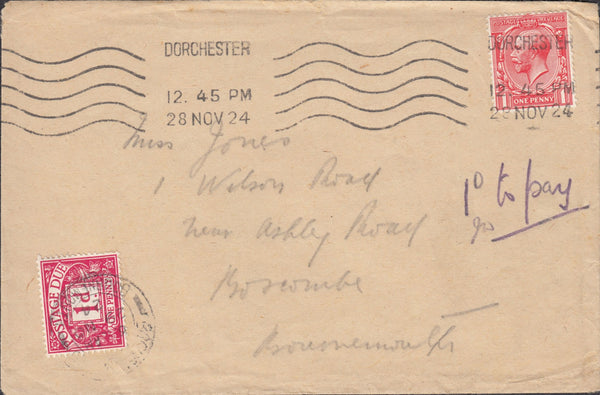 DORCHESTER
12. 45 PM
28 NOV 24
DORCHESTER
12. 45 PM
28 NOV 24
POSTAGE REVENUE
ONE PENNY
Miss Jones
1 Wilson Road
near Ashley Road
Boscombe
Bournemouth
1D to pay
POSTAGE DUE
ONE PENNY
1D